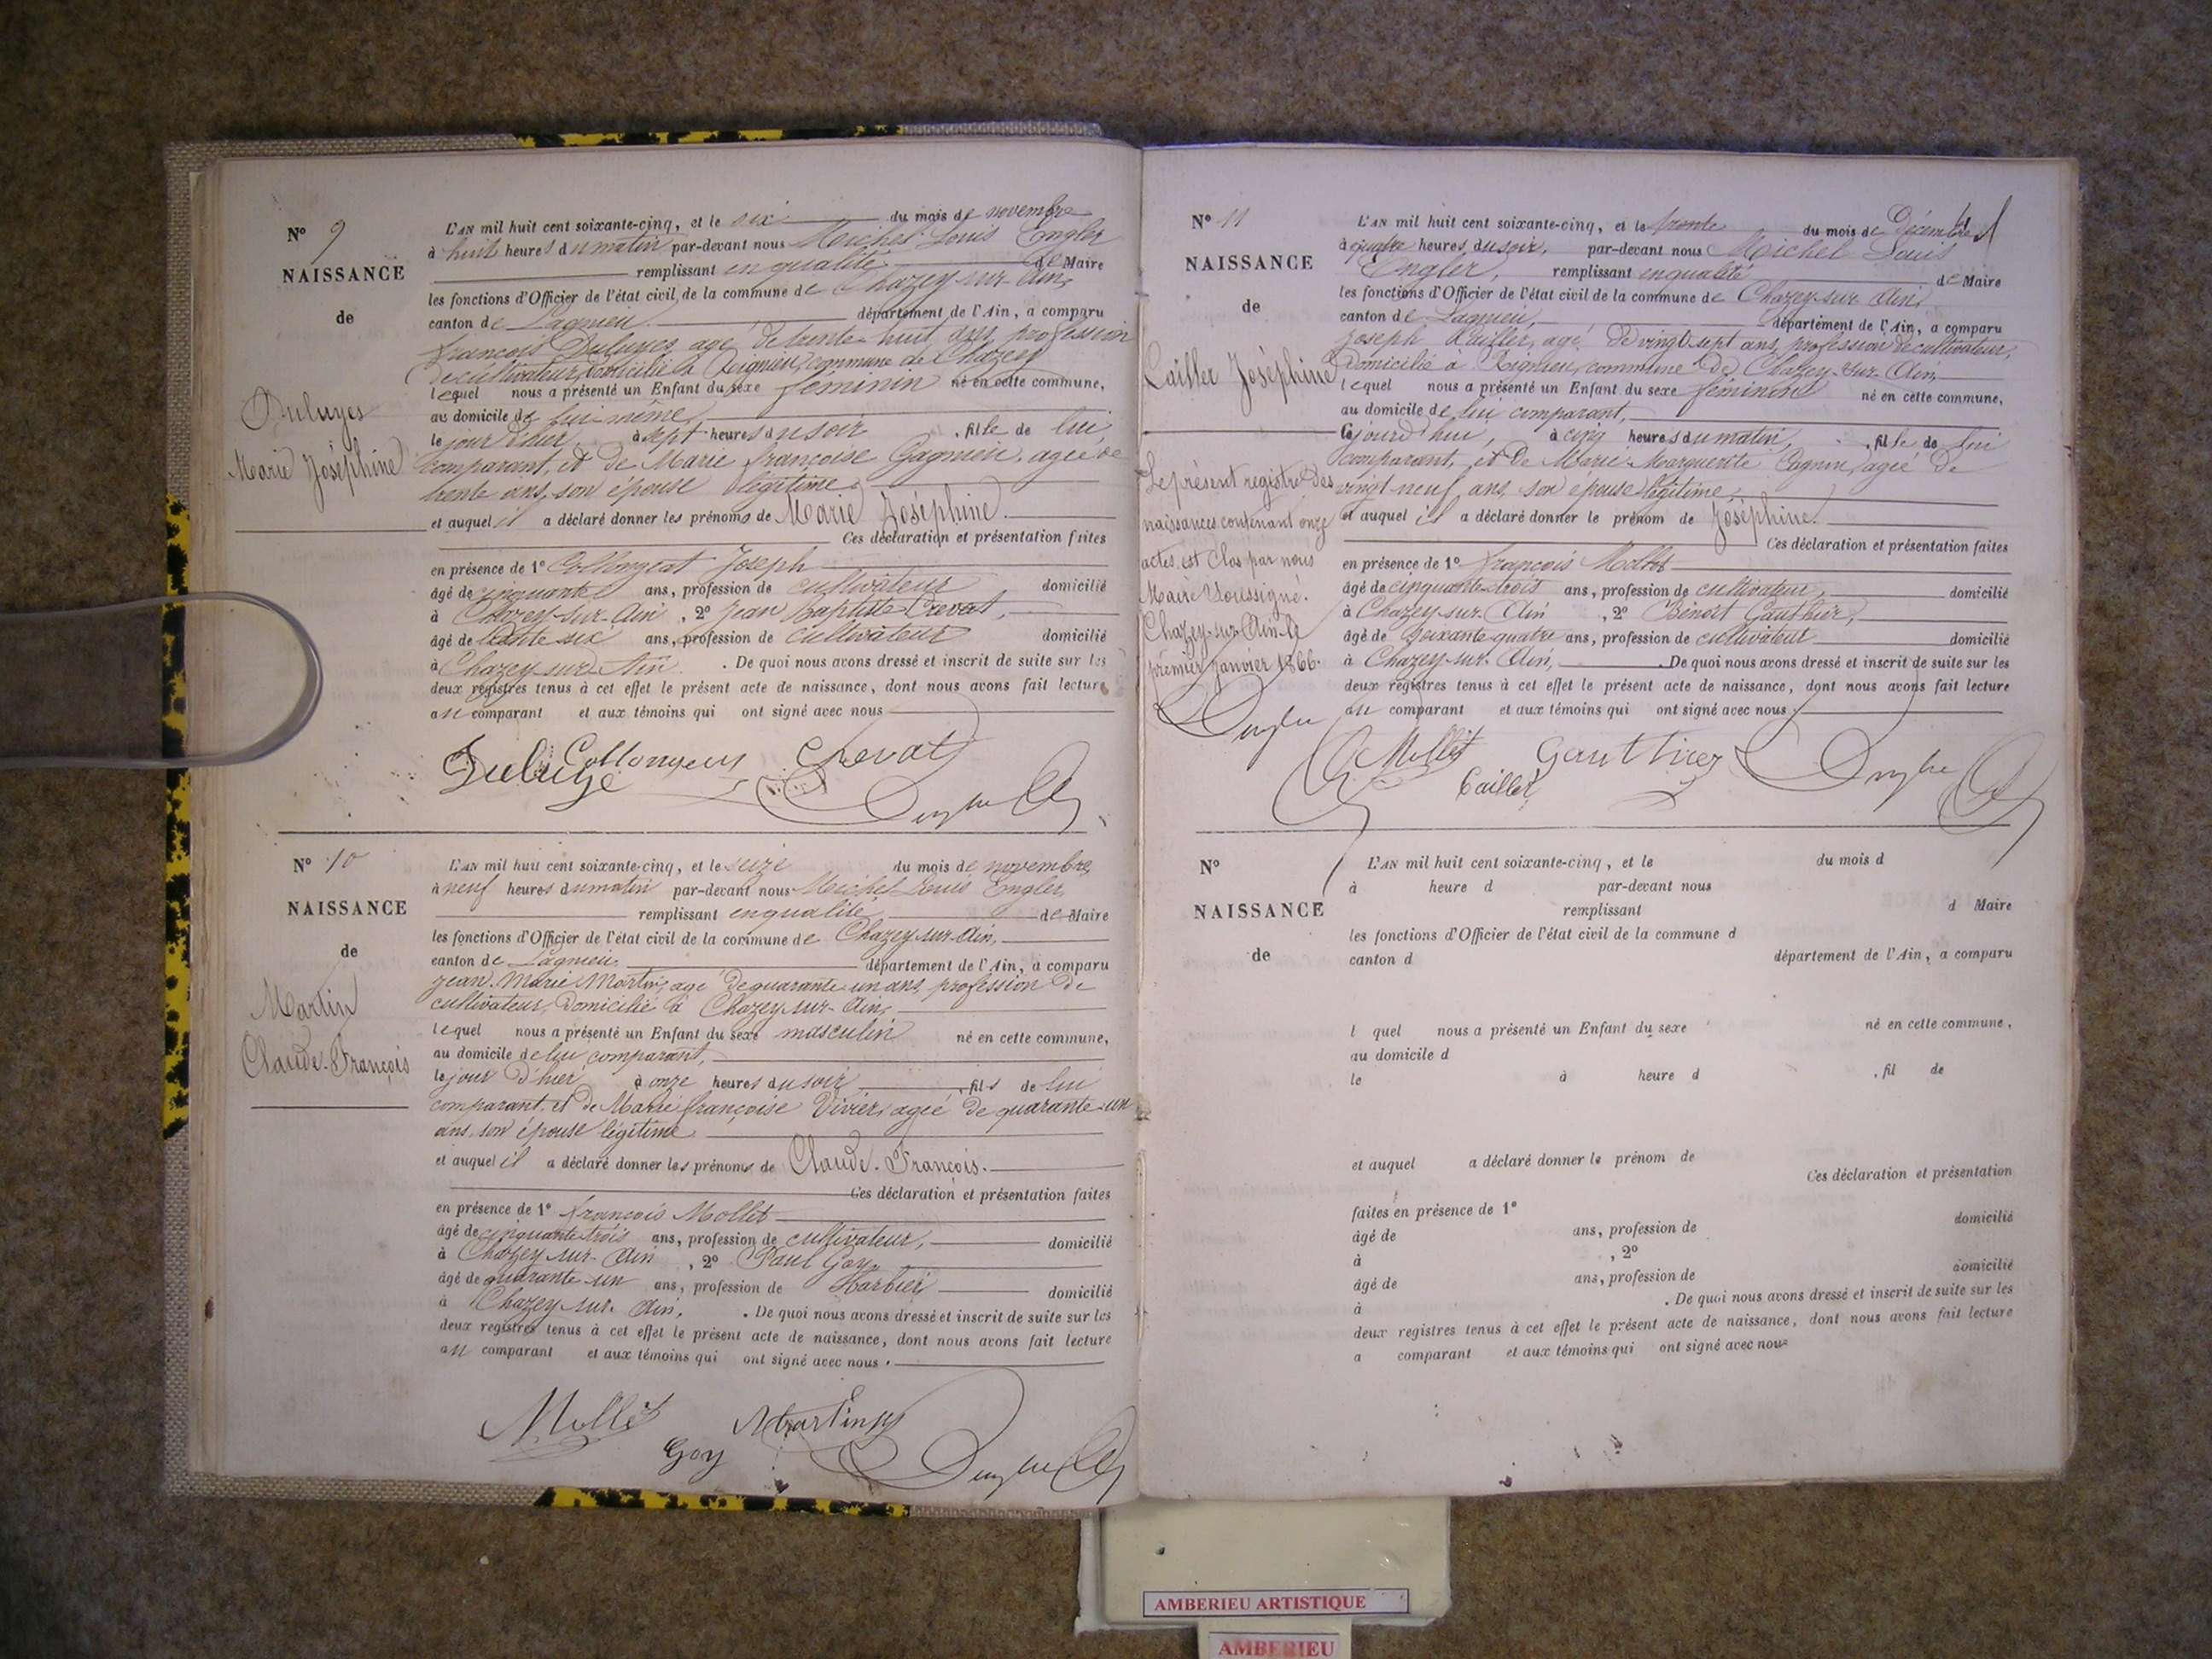 N° 9
NAISSANCE
de
Duluyes
Marie Joséphine
L'AN mil huit cent soixante-cinq, et le six du mois de novembre
à huit heures du matin par-devant nous Michel Louis Engler
remplissant en qualité de Maire
les fonctions d'Officier de l'état civil de la commune de Chazey-sur-Ain,
canton de Lagnieu département de l'Ain, a comparu
françois Duluyes, agé de trente-huit ans, profession
de cultivateur, domicilié à Rignieu, commune de Chazey
lequel nous a présenté un Enfant du sexe féminin né en cette commune,
au domicile de lui même
le jour d'hier à sept heures du soir, fille de lui
comparant, et de Marie françoise Gagnieu, agée de
trente ans, son épouse légitime
et auquel il a déclaré donner les prénoms de Marie Joséphine.
Ces déclaration et présentation faites
en présence de 1° Collongeat Joseph
âgé de cinquante ans, profession de cultivateur domicilié
à Chazey-sur-Ain, 2° Jean Baptiste Crevat,
âgé de trente six ans, profession de cultivateur domicilié
à Chazey-sur-Ain. De quoi nous avons dressé et inscrit de suite sur les
deux registres tenus à cet effet le présent acte de naissance, dont nous avons fait lecture
au comparant et aux témoins qui ont signé avec nous
Duluye Crevat
N° 10
NAISSANCE
de
Martin
Claude-François
L'AN mil huit cent soixante-cinq, et le seize du mois de novembre
à neuf heures du matin par-devant nous Michel Louis Engler,
remplissant en qualité de Maire
les fonctions d'Officier de l'état civil de la commune de Chazey-sur-Ain,
canton de Lagnieu département de l'Ain, a comparu
jean-Marie Martin, agé de quarante-un ans, profession de
cultivateur, domicilié à Chazey-sur-Ain,
lequel nous a présenté un Enfant du sexe masculin né en cette commune,
au domicile de lui comparant,
le jour d'hier à onze heures du soir, fils de lui
comparant et de Marie françoise Vivier, agée de quarante-un
ans, son épouse légitime
et auquel il a déclaré donner les prénoms de Claude-François.
Ces déclaration et présentation faites
en présence de 1° françois Mollet
âgé de cinquante trois ans, profession de cultivateur, domicilié
à Chazey-sur-Ain, 2° Paul Goy
âgé de quarante-un ans, profession de domicilié
à Chazey-sur-Ain. De quoi nous avons dressé et inscrit de suite sur les
deux registres tenus à cet effet le présent acte de naissance, dont nous avons fait lecture
au comparant et aux témoins qui ont signé avec nous.
Mollet Martin
Goy
N° 11
NAISSANCE
de
Cailler Joséphine
Le présent registre des
naissances contenant onze
actes, est clos par nous
Maire Soussigné.
Chazey-sur-Ain le
premier janvier 1866.
L'AN mil huit cent soixante-cinq, et le trente du mois de Décembre
à quatre heures du soir, par-devant nous Michel Louis
Engler, remplissant en qualité de Maire
les fonctions d'Officier de l'état civil de la commune de Chazey-sur-Ain,
canton de Lagnieu, département de l'Ain, a comparu
Joseph Cailler, agé de vingt-sept ans, profession de cultivateur,
domicilié à Rignieu, commune de Chazey-sur-Ain,
lequel nous a présenté un Enfant du sexe féminin né en cette commune,
au domicile de lui comparant,
Cejourd'hui, à cinq heures du matin, fille de lui
comparant, et de Marie-Marguerite agée de
vingt neuf ans, son épouse légitime,
et auquel il a déclaré donner le prénom de Joséphine.
Ces déclaration et présentation faites
en présence de 1° françois Mollet
âgé de cinquante-trois ans, profession de cultivateur, domicilié
à Chazey-sur-Ain, 2° Benoit Gauthier,
âgé de soixante-quatre ans, profession de cultivateur domicilié
à Chazey-sur-Ain, De quoi nous avons dressé et inscrit de suite sur les
deux registres tenus à cet effet le présent acte de naissance, dont nous avons fait lecture
au comparant et aux témoins qui ont signé avec nous.
Mollet Gauthier
Cailler
N°
NAISSANCE
de
L'AN mil huit cent soixante-cinq, et le du mois d
à heure d par-devant nous
remplissant d Maire
les fonctions d'Officier de l'état civil de la commune d
canton d département de l'Ain, a comparu
l quel nous a présenté un Enfant du sexe né en cette commune,
au domicile d
le à heure d , fil de
et auquel a déclaré donner le prénom de
Ces déclaration et présentation
faites en présence de 1°
âgé de ans, profession de domicilié
à , 2°
âgé de ans, profession de domicilié
à . De quoi nous avons dressé et inscrit de suite sur les
deux registres tenus à cet effet le présent acte de naissance, dont nous avons fait lecture
a comparant et aux témoins qui ont signé avec nous
AMBERIEU ARTISTIQUE
AMBERIEU